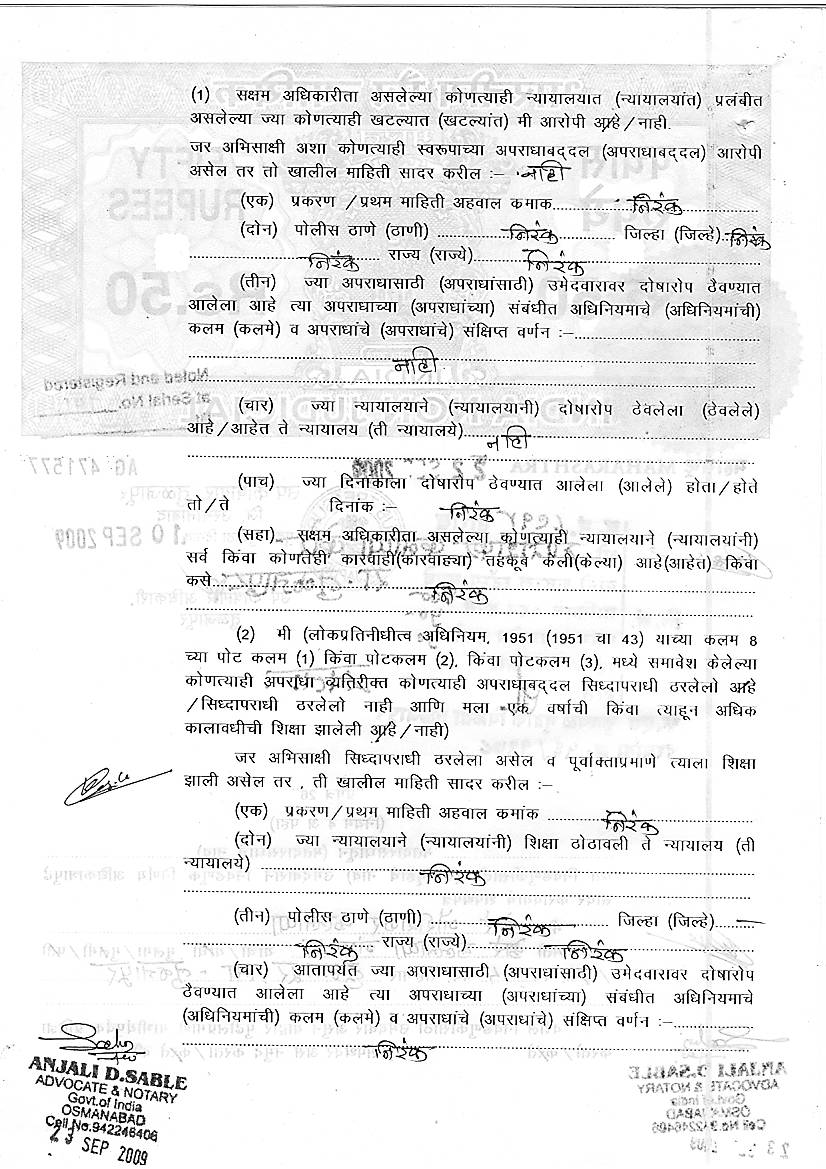 (1) सक्षम अधिकारीता असलेल्या कोणत्याही न्यायालयात (न्यायालयांत) प्रलंबीत
असलेल्या ज्या कोणत्याही खटल्यात (खटल्यांत) मी आरोपी आहे/नाही.
जर अभिसाक्षी अशा कोणत्याही स्वरूपाच्या अपराधाबद्दल (अपराधाबद्दल) आरोपी
असेल तर तो खालील माहिती सादर करील :– नाही
(एक) प्रकरण /प्रथम माहिती अहवाल कमाक....................निरंक....................
(दोन) पोलीस ठाणे (ठाणी) ....................निरंक.................... जिल्हा (जिल्हे).निरंक
....................निरंक........ राज्य (राज्ये)........निरंक....................
(तीन) ज्या अपराधासाठी (अपराधांसाठी) उमेदवारावर दोषारोप ठेवण्यात
आलेला आहे त्या अपराधाच्या (अपराधांच्या) संबंधीत अधिनियमाचे (अधिनियमांची)
कलम (कलमे) व अपराधांचे (अपराधांचे) संक्षिप्त वर्णन :–....................
....................नाही....................
Noted and Registered
at Serial No.
(चार) ज्या न्यायालयाने (न्यायालयानी) दोषारोप ठेवलेला (ठेवलेले)
आहे/आहेत ते न्यायालय (ती न्यायालये)........नाही....................
AG 471577
(पाच) ज्या दिनाकाला दोषारोप ठेवण्यात आलेला (आलेले) होता/होते
तो/ते दिनांक :– निरंक
10 SEP 2009
(सहा) सक्षम अधिकारीता असलेल्या कोणत्याही न्यायालयाने (न्यायालयांनी)
सर्व किंवा कोणतेही कारवाही(कारवाह्या) तहकूब केली(केल्या) आहे(आहेत) किंवा
कसे....................निरंक....................
(2) मी (लोकप्रतिनीधीत्व अधिनियम, 1951 (1951 चा 43) याच्या कलम 8
च्या पोट कलम (1) किंवा पोटकलम (2), किंवा पोटकलम (3), मध्ये समावेश केलेल्या
कोणत्याही अपराधा व्यतिरीक्त कोणत्याही अपराधाबद्दल सिध्दापराधी ठरलेलो आहे
/सिध्दापराधी ठरलेलो नाही आणि मला एक वर्षाची किंवा त्याहून अधिक
कालावधीची शिक्षा झालेली आहे/नाही)
जर अभिसाक्षी सिध्दापराधी ठरलेला असेल व पूर्वाक्ताप्रमाणे त्याला शिक्षा
झाली असेल तर , ती खालील माहिती सादर करील :–
(एक) प्रकरण/प्रथम माहिती अहवाल कमांक ........निरंक........
(दोन) ज्या न्यायालयाने (न्यायालयांनी) शिक्षा ठोठावली ते न्यायालय (ती
न्यायालये) ....................निरंक....................
(तीन) पोलीस ठाणे (ठाणी) ........निरंक........ जिल्हा (जिल्हे)........
....................निरंक........ राज्य (राज्ये)........निरंक........
(चार) आतापर्यत ज्या अपराधासाठी (अपराधांसाठी) उमेदवारावर दोषारोप
ठेवण्यात आलेला आहे त्या अपराधाच्या (अपराधांच्या) संबंधीत अधिनियमाचे
(अधिनियमांची) कलम (कलमे) व अपराधांचे (अपराधांचे) संक्षिप्त वर्णन :–........
....................निरंक....................
ANJALI D.SABLE
ADVOCATE & NOTARY
Govt.of India
OSMANABAD
Cell No.942246406
23 SEP 2009